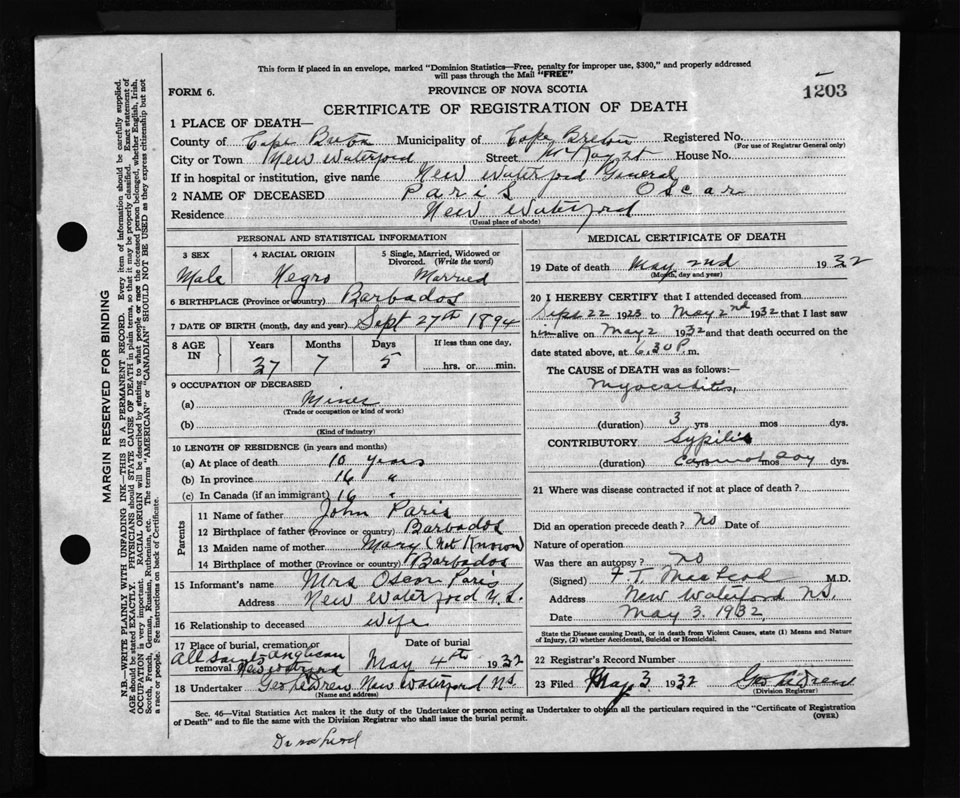 This form if placed in an envelope, marked "Dominion Statistics—Free, penalty for improper use, $300," and properly addressed
will pass through the Mail "FREE"
FORM 6.
PROVINCE OF NOVA SCOTIA
1203
CERTIFICATE OF REGISTRATION OF DEATH
1 PLACE OF DEATH—
County of Cape Breton Municipality of Cape Breton Registered No.
(For use of Registrar General only)
City or Town New Waterford Street House No.
If in hospital or institution, give name New Waterford General
2 NAME OF DECEASED Paris Oscar
Residence New Waterford
(Usual place of abode)
PERSONAL AND STATISTICAL INFORMATION
3 SEX 4 RACIAL ORIGIN 5 Single, Married, Widowed or
Divorced. (Write the word)
Male Negro Married
6 BIRTHPLACE (Province or country) Barbados
7 DATE OF BIRTH (month, day and year) Sept 27th 1894
8 AGE IN Years Months Days If less than one day,
37 7 5 hrs. or min.
9 OCCUPATION OF DECEASED
(a) Miner
(Trade or occupation or kind of work)
(b)
(Kind of industry)
10 LENGTH OF RESIDENCE (in years and months)
(a) At place of death 10 years
(b) In province 16 "
(c) In Canada (if an immigrant) 16 "
Parents
11 Name of father John Paris
12 Birthplace of father (Province or country) Barbados
13 Maiden name of mother Mary (Not Known)
14 Birthplace of mother (Province or country) Barbados
15 Informant's name Mrs Oscar Paris
Address New Waterford N.S.
16 Relationship to deceased Wife
17 Place of burial, cremation or removal Date of burial
All Saints Anglican
New Waterford May 4th 1932
18 Undertaker Geo Drew New Waterford NS
(Name and address)
MEDICAL CERTIFICATE OF DEATH
19 Date of death May 2nd 1932
(Month, day and year)
20 I HEREBY CERTIFY that I attended deceased from
Sept 22 1925 to May 2nd 1932 that I last saw
him alive on May 2 1932 and that death occurred on the
date stated above, at 6.30 P. m.
The CAUSE of DEATH was as follows:—
Myocarditis,
(duration) 3 yrs mos dys.
CONTRIBUTORY Sypilis
(duration) Cannot Say yrs mos dys.
21 Where was disease contracted if not at place of death?
Did an operation precede death? no Date of
Nature of operation
Was there an autopsy? no
(Signed) F. T. MacLeod M.D.
Address New Waterford NS.
Date May 3. 1932
State the Disease causing Death, or in death from Violent Causes, state (1) Means and Nature
of Injury, (2) whether Accidental, Suicidal or Homicidal.
22 Registrar's Record Number
23 Filed May 3 1932 Geo Drew
(Division Registrar)
Sec. 46—Vital Statistics Act makes it the duty of the Undertaker or person acting as Undertaker to obtain all the particulars required in the "Certificate of Registration
of Death" and to file the same with the Division Registrar who shall issue the burial permit.
(OVER)
MARGIN RESERVED FOR BINDING
N.B.—WRITE PLAINLY WITH UNFADING INK—THIS IS A PERMANENT RECORD. Every item of information should be carefully supplied.
AGE should be stated EXACTLY. PHYSICIANS should STATE CAUSE OF DEATH in plain terms, so that it may be properly classified. Exact statement of
OCCUPATION is very important. RACIAL ORIGIN will be described by stating to what people or race the deceased person belonged, whether English, Irish,
Scotch, French, German, Russian, Ruthenian, etc. The terms "AMERICAN" or "CANADIAN" SHOULD NOT BE USED as they express citizenship but not
a race or people. See instructions on back of Certificate.